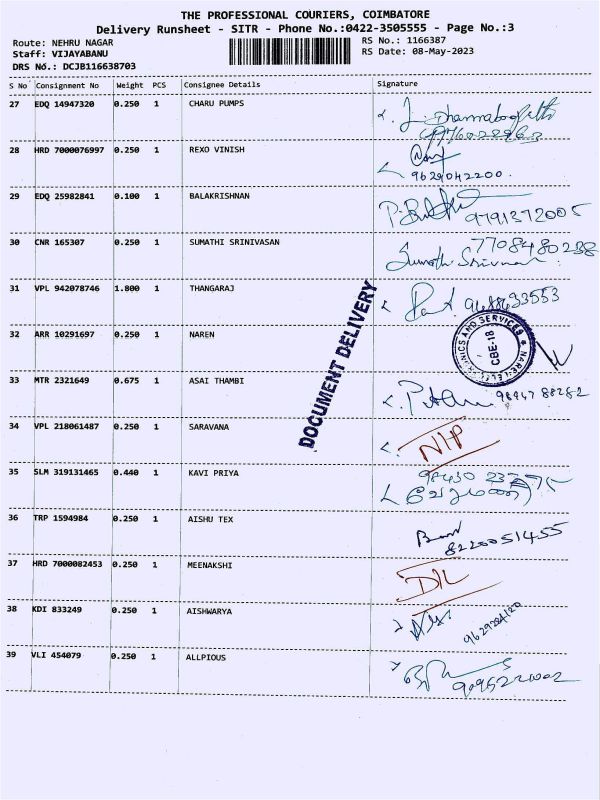 THE PROFESSIONAL COURIERS, COIMBATORE
Delivery Runsheet - SITR - Phone No.:0422-3505555 - Page No.:3
Route: NEHRU NAGAR
RS No.: 1166387
Staff: VIJAYABANU
RS Date: 08-May-2023
DRS No.: DCJB116638703
S No Consignment No Weight PCS Consignee Details Signature
27 EDQ 14947320 0.250 1 CHARU PUMPS
28 HRD 7000076997 0.250 1 REXO VINISH
9629042200.
29 EDQ 25982841 0.100 1 BALAKRISHNAN
9791372005
30 CNR 165307 0.250 1 SUMATHI SRINIVASAN 7708480238
31 VPL 942078746 1.800 1 THANGARAJ 9688633553
32 ARR 10291697 0.250 1 NAREN
CBE-18
33 MTR 2321649 0.675 1 ASAI THAMBI 98947 88282
DOCUMENT DELIVERY
34 VPL 218061487 0.250 1 SARAVANA
35 SLM 319131465 0.440 1 KAVI PRIYA
36 TRP 1594984 0.250 1 AISHU TEX
8220051455
37 HRD 7000082453 0.250 1 MEENAKSHI
D/L
38 KDI 833249 0.250 1 AISHWARYA
39 VLI 454079 0.250 1 ALLPIOUS